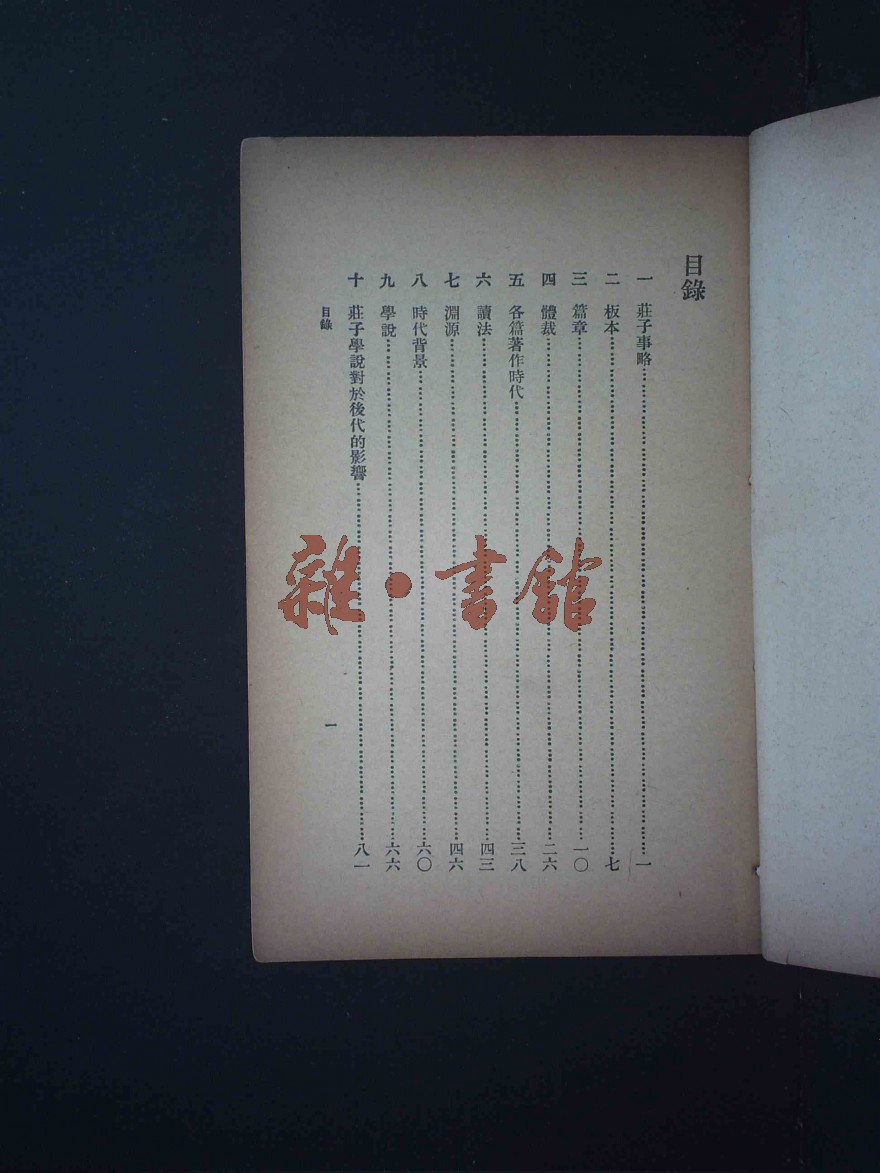 目錄
一 莊子事略……一
二 板本……七
三 篇章……一〇
四 體裁……二六
五 各篇著作時代……三八
六 讀法……四三
七 淵源……四六
八 時代背景……六〇
九 學說……六六
十 莊子學說對於後代的影響……八一
目錄 一
雜·書館